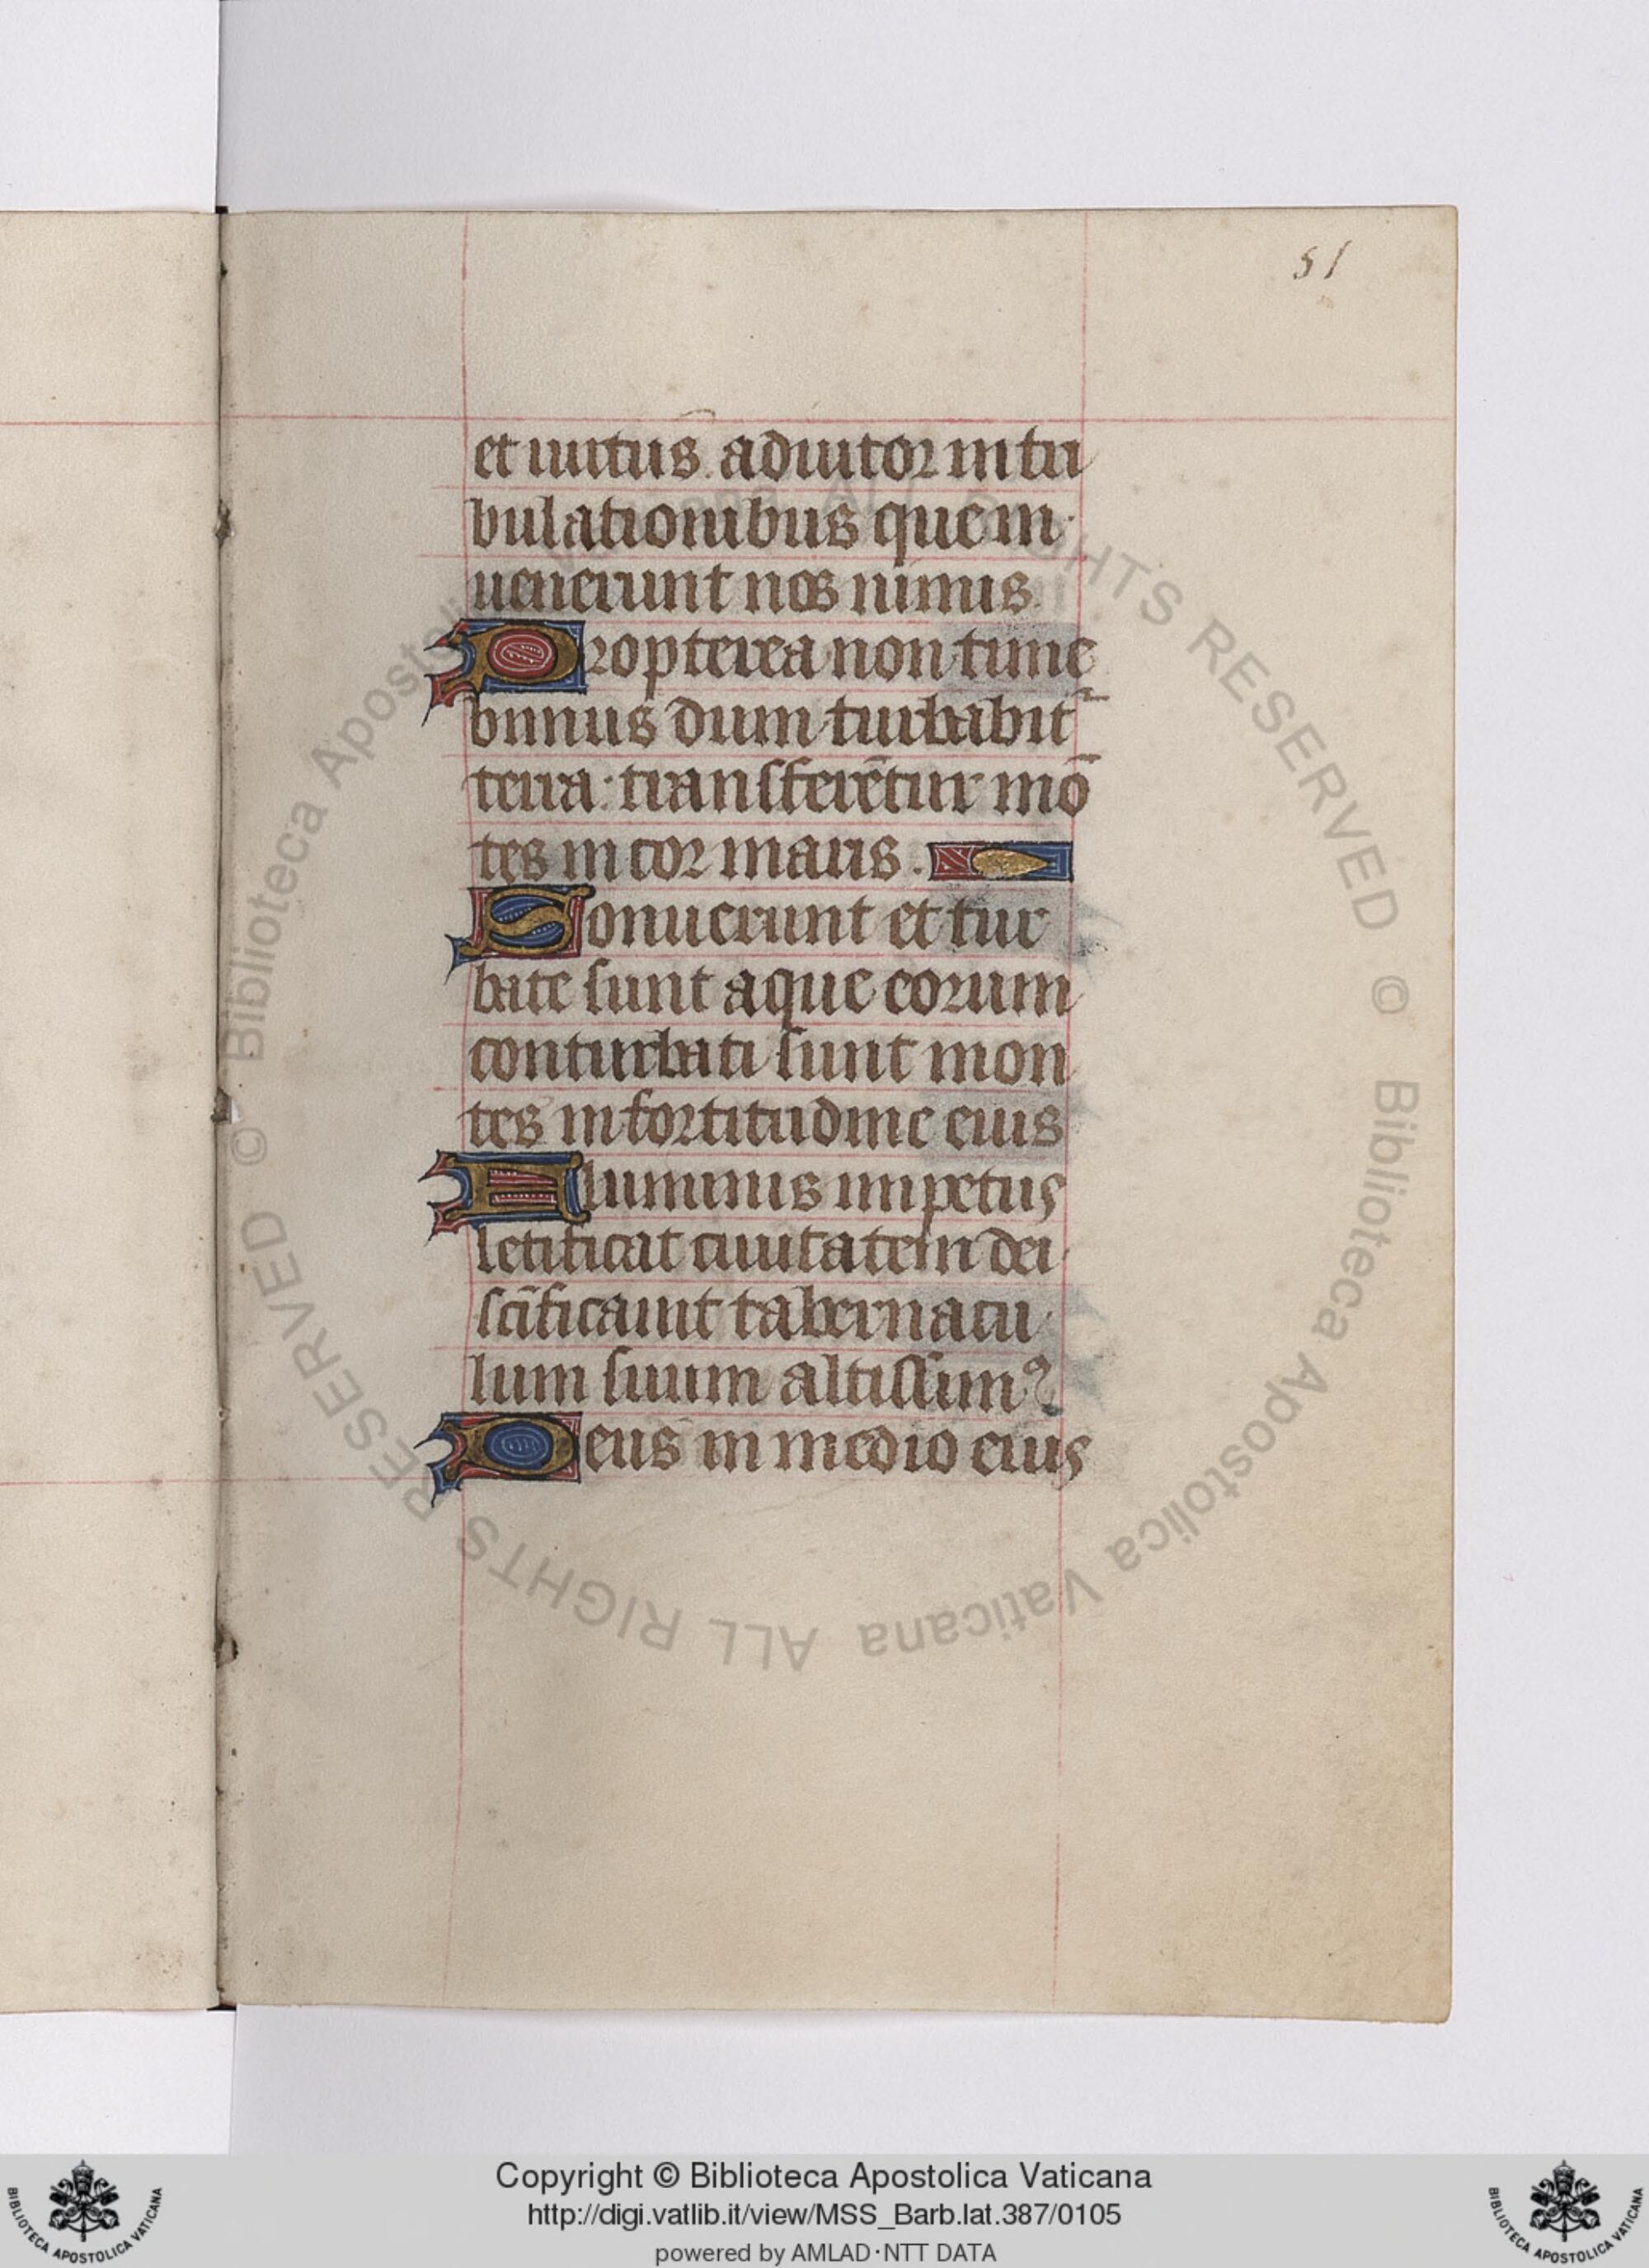 51
et uirtus. adiutor in tri
bulationibus que in
uenerunt nos nimis.
Propterea non time
bimus dum turbabit᷑
terra: transferētur mō
tes in cor maris.
Sonuerunt et tur
bate sunt aque eorum
conturbati sunt mon
tes in fortitudine eius
Fluminis impetus
letificat ciuitatem dei
scīficauit tabernacu
lum suum altissimꝰ
Deus in medio eius
© Biblioteca Apostolica Vaticana ALL RIGHTS RESERVED © Biblioteca Apostolica Vaticana ALL RIGHTS RESERVED
Copyright © Biblioteca Apostolica Vaticana
http://digi.vatlib.it/view/MSS_Barb.lat.387/0105
powered by AMLAD·NTT DATA
BIBLIOTECA APOSTOLICA VATICANA
BIBLIOTECA APOSTOLICA VATICANA